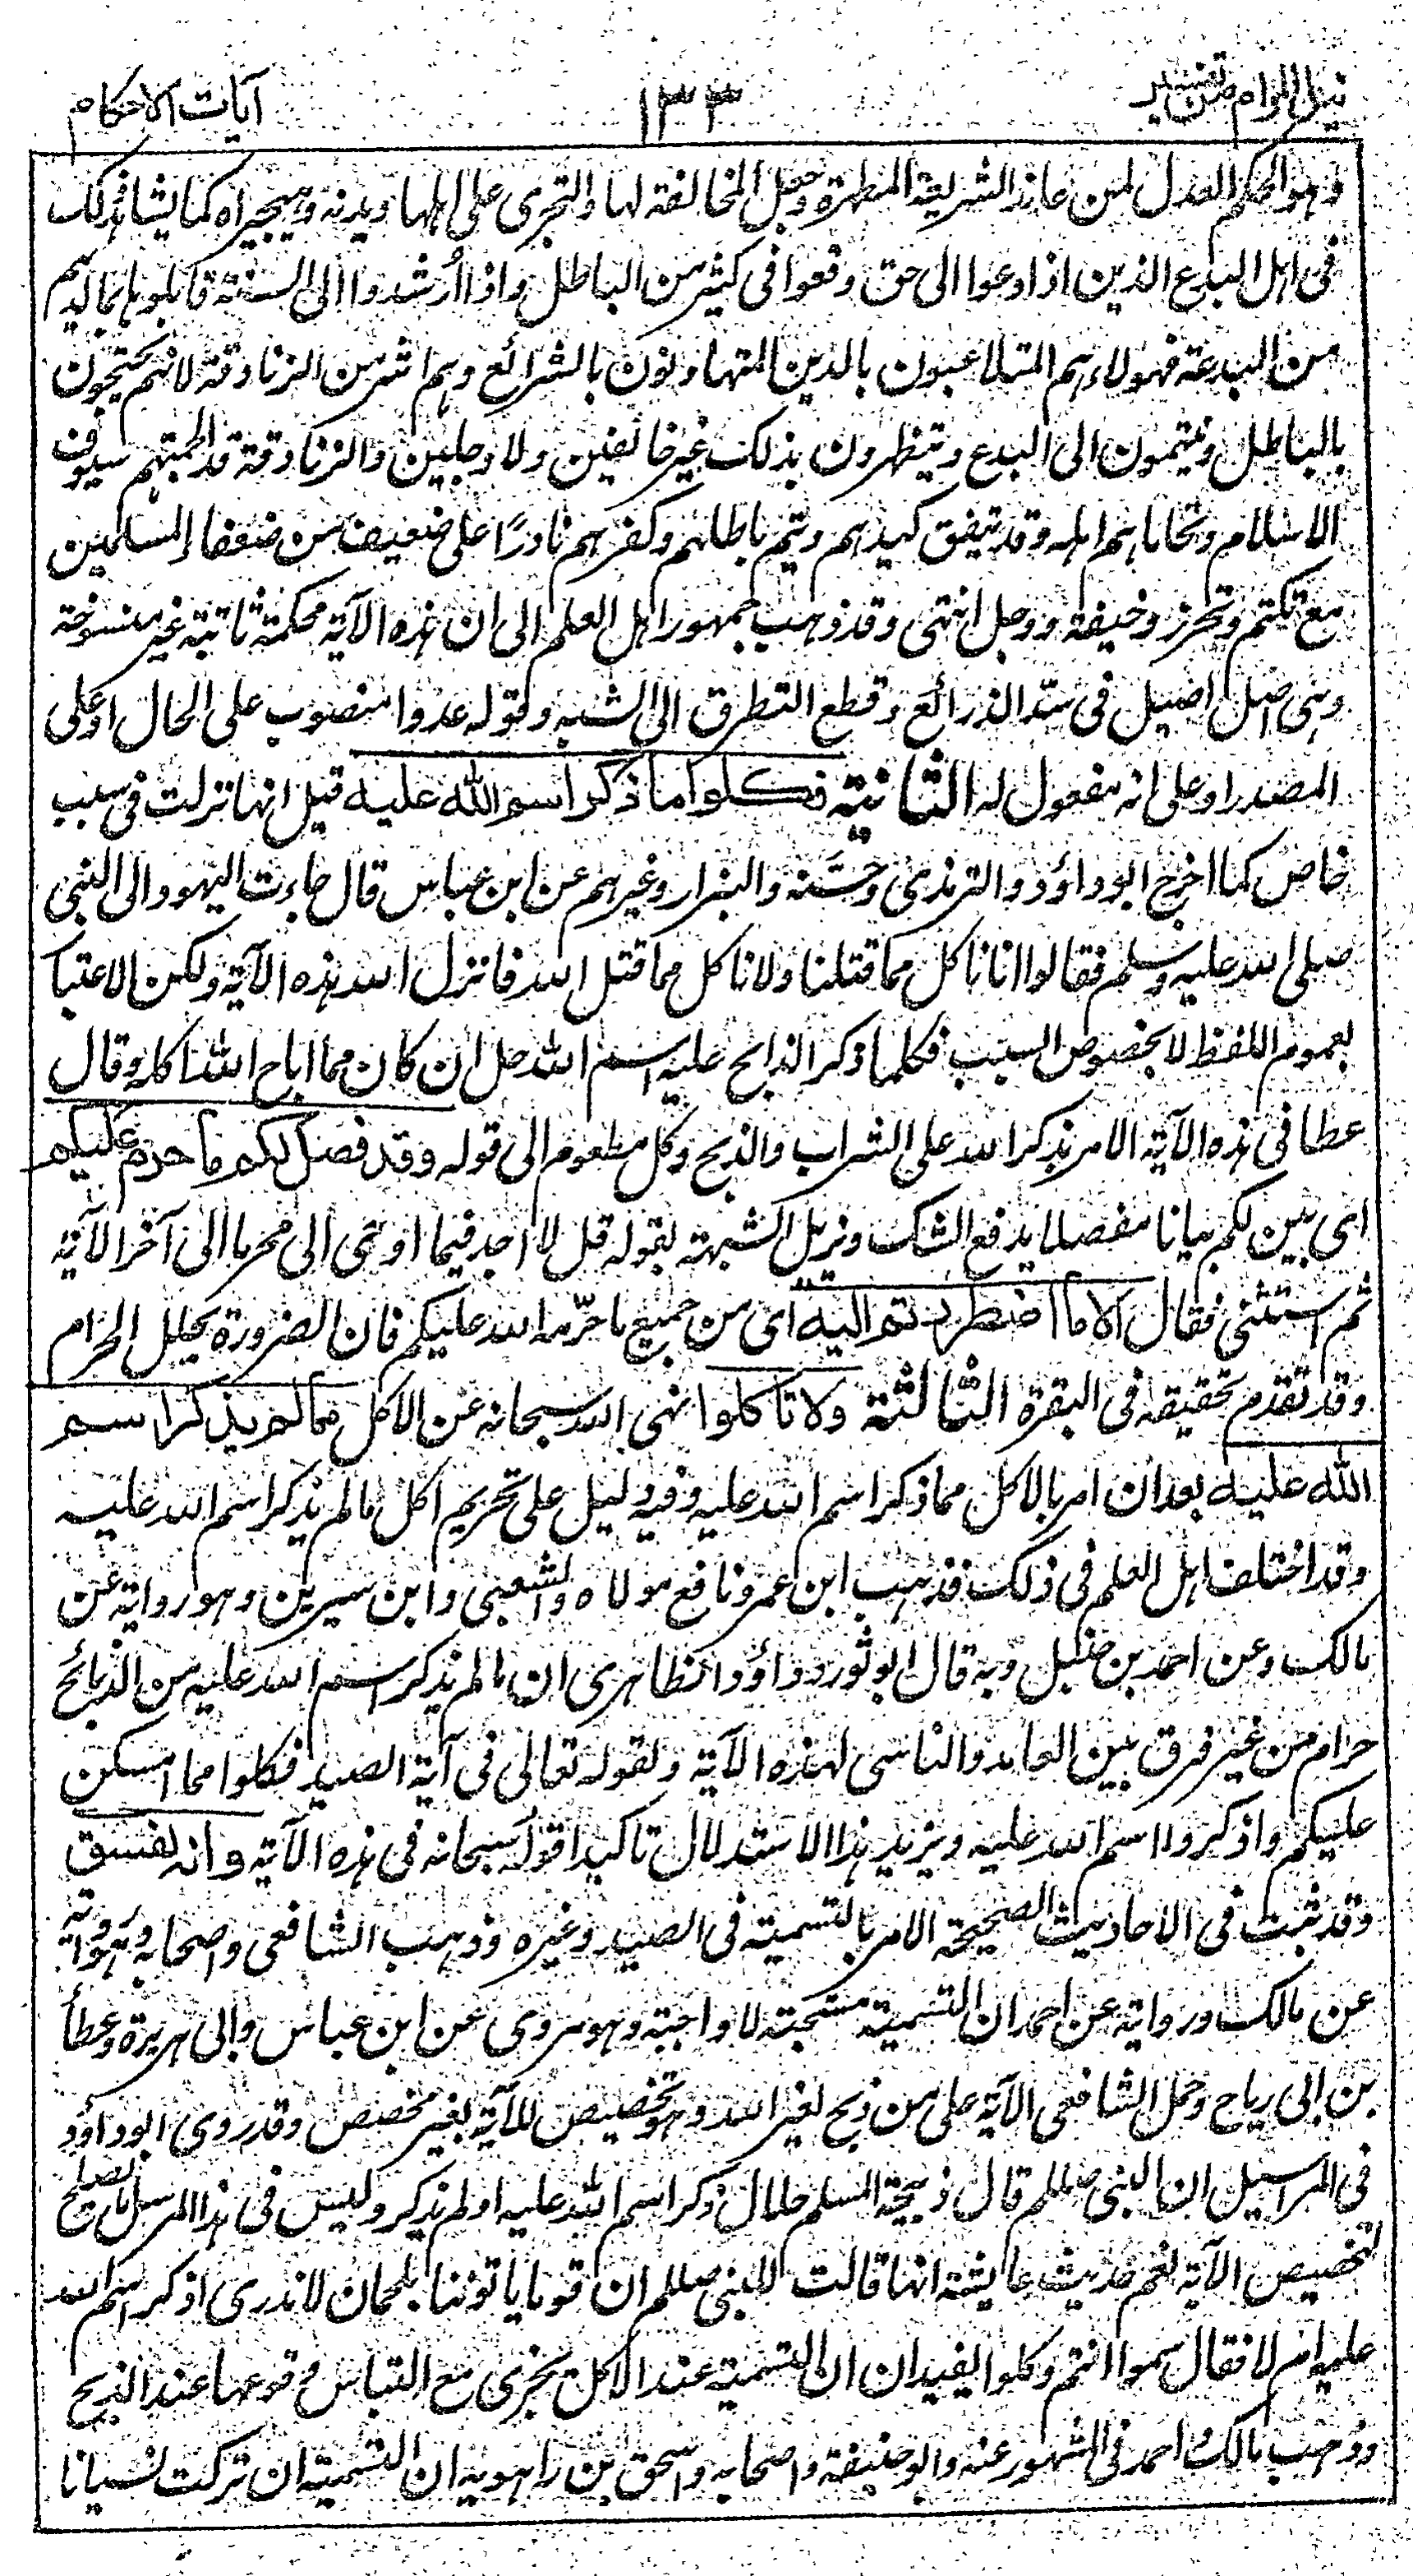 نيل المرام من تفسير ١٣٣ آيات الاحكام
وهو الحكم العدل لمن عاند الشريعة المطهرة وجعل المخالفة لها والتجري على اهلها ديدنه وهجيراه كما يشاهد ذلك
فى اهل البدع الذين اذا دعوا الى حق وقعوا فى كثير من الباطل واذا اُرشدوا الى السنة قابلوها بما لديهم
من البدعة فهولاء هم المتلاعبون بالدين المتهاونون بالشرائع وهم اشر من الزنادقة لانهم يحتجون
بالباطل وينتمون الى البدع ويتظهرون بذلك غير خائفين ولا وجلين والزنادقة قد الجمتهم سيوف
الاسلام وتحاماهم اهله وقد يتفق كيدهم ويتم باطلهم وكفرهم نادرًا على ضعيف من ضعفاء المسلمين
مع تكتم وتحرز وخيفة ووجل انتهى وقد ذهب جمهور اهل العلم الى ان هذه الآية محكمة ثابتة غير منسوخة
وهى اصل اصيل فى سدّ الذرائع وقطع التطرق الى الشبه وقوله عدوا منصوب على الحال او على
المصدر او على انه مفعول له الثانية فكلوا مما ذكر اسم الله عليه قيل انها نزلت فى سبب
خاص كما اخرج ابوداؤد والترمذى وحسّنه والبزار وغيرهم عن ابن عباس قال جاءت اليهود الى النبى
صلى الله عليه وسلم فقالوا انا ناكل مما قتلنا ولا ناكل مما قتل الله فانزل الله هذه الآية ولكن الاعتبا
بعموم اللفظ لا بخصوص السبب فكلما ذكر الذابح عليه اسم الله حل ان كان مما اباح الله اكله وقال
عطا فى هذه الآية الامر بذكر الله على الشراب والذبح وكل مطعوم الى قوله وقد فصل لكم ما حرم عليكم
اى بين لكم بيانا مفصلا يدفع الشك ويزيل الشبهة بقوله قل لا اجد فيما اوحى الى محرما الى آخر الآية
ثم استثنى فقال الا ما اضطررتم اليه اى من جميع ما حرّمه الله عليكم فان الضرورة تحلل الحرام
وقد تقدم تحقيقه فى البقرة الثالثة ولا تاكلوا نهى الله سبحانه عن الاكل مما لم يذكر اسم
الله عليه بعد ان امر بالاكل مما ذكر اسم الله عليه وفيه دليل على تحريم اكل ما لم يذكر اسم الله عليه
وقد اختلف اهل العلم فى ذلك فذهب ابن عمر ونافع مولاه والشعبى وابن سيرين وهو رواية عن
مالك وعن احمد بن حنبل وبه قال ابو ثور وداؤد الظاهرى ان ما لم يذكر اسم الله عليه من الذبائح
حرام من غير فرق بين العامد والناسى لهذه الآية ولقوله تعالى فى آية الصيد فكلوا مما امسكن
عليكم واذكروا اسم الله عليه ويزيد هذا الاستدلال تاكيدا قوله سبحانه فى هذه الآية وانه لفسق
وقد ثبت فى الاحاديث الصحيحة الامر بالتسمية فى الصيد وغيره وذهب الشافعى واصحابه وهو رواية
عن مالك ورواية عن احمد ان التسمية مستحبة لا واجبة وهو مروى عن ابن عباس وابى هريرة وعطأ
بن ابى رباح وحمل الشافعى الآية على من ذبح لغير الله وهو تخصيص للآية بغير مخصص وقد روى ابوداؤد
فى المراسيل ان النبى صللم قال ذبيحة المسلم حلال ذكر اسم الله عليه او لم يذكر وليس فى هذا المرسل ما يصلح
لتخصيص الآية نعم حديث عايشة انها قالت للنبى صللم ان قوما ياتوننا بلحمان لا ندرى اذكر اسم الله
عليه ام لا فقال سموا انتم وكلوا يفيد ان التسمية عند الاكل تجزى مع التباس وقوعها عند الذبح
وذهب مالك واحمد فى المشهور عنه وابوحنيفة واصحابه واسحق بن راهويه ان التسمية ان تركت نسيانا